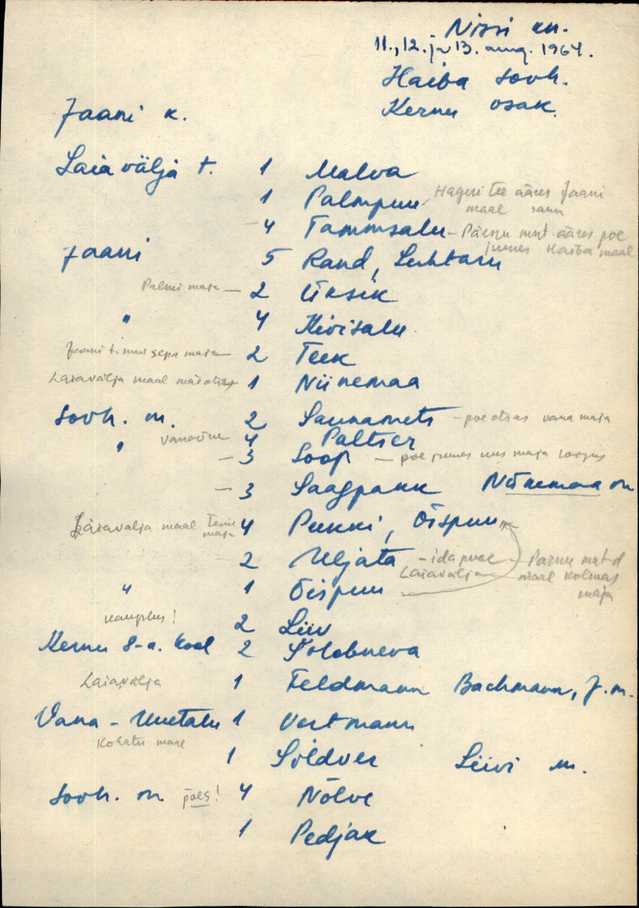 Nissi khk.
11., 12. ja 13. aug. 1964.
Haiba sovh.
Kernu osak.
Jaani k.
Laiavälja t. 1 Malva
1 Palmpuu Hageri tee ääres Jaani
maal
4 Tammsalu - Pärnu mnt ääres poe
juures Haiba maal
Jaani 5 Rand, Luhtaru
Palmi maja - 2 Üksik
" 4 Kivisalu
Jaani t. maja - 2 Teek
Laiavälja maal 1 Niinemaa
Sovh. m. 2 Saunamets - poe otsas vana maja
" 4 Paltser
- 3 Soop - poe juures uus maja
- 3 Saagpakk Niinemaa on
Laiavälja maal maja 4 Pukki, Õispuu
2 Uljata - ida pool Pärnu mnt-d
Laiavälja maal kolmas
" 1 Õispuu maja
kauplus!
2 Liiv
Kernu 8-a. kool 2 Solobneva
Laiavälja 1 Feldmann Bachmann, J. m.
Vana-Uuetalu 1 Vertmann
Kohatu maal
1 Soldver Liivi m.
Sovh. m. poes! 4 Nõlve
1 Pedjak